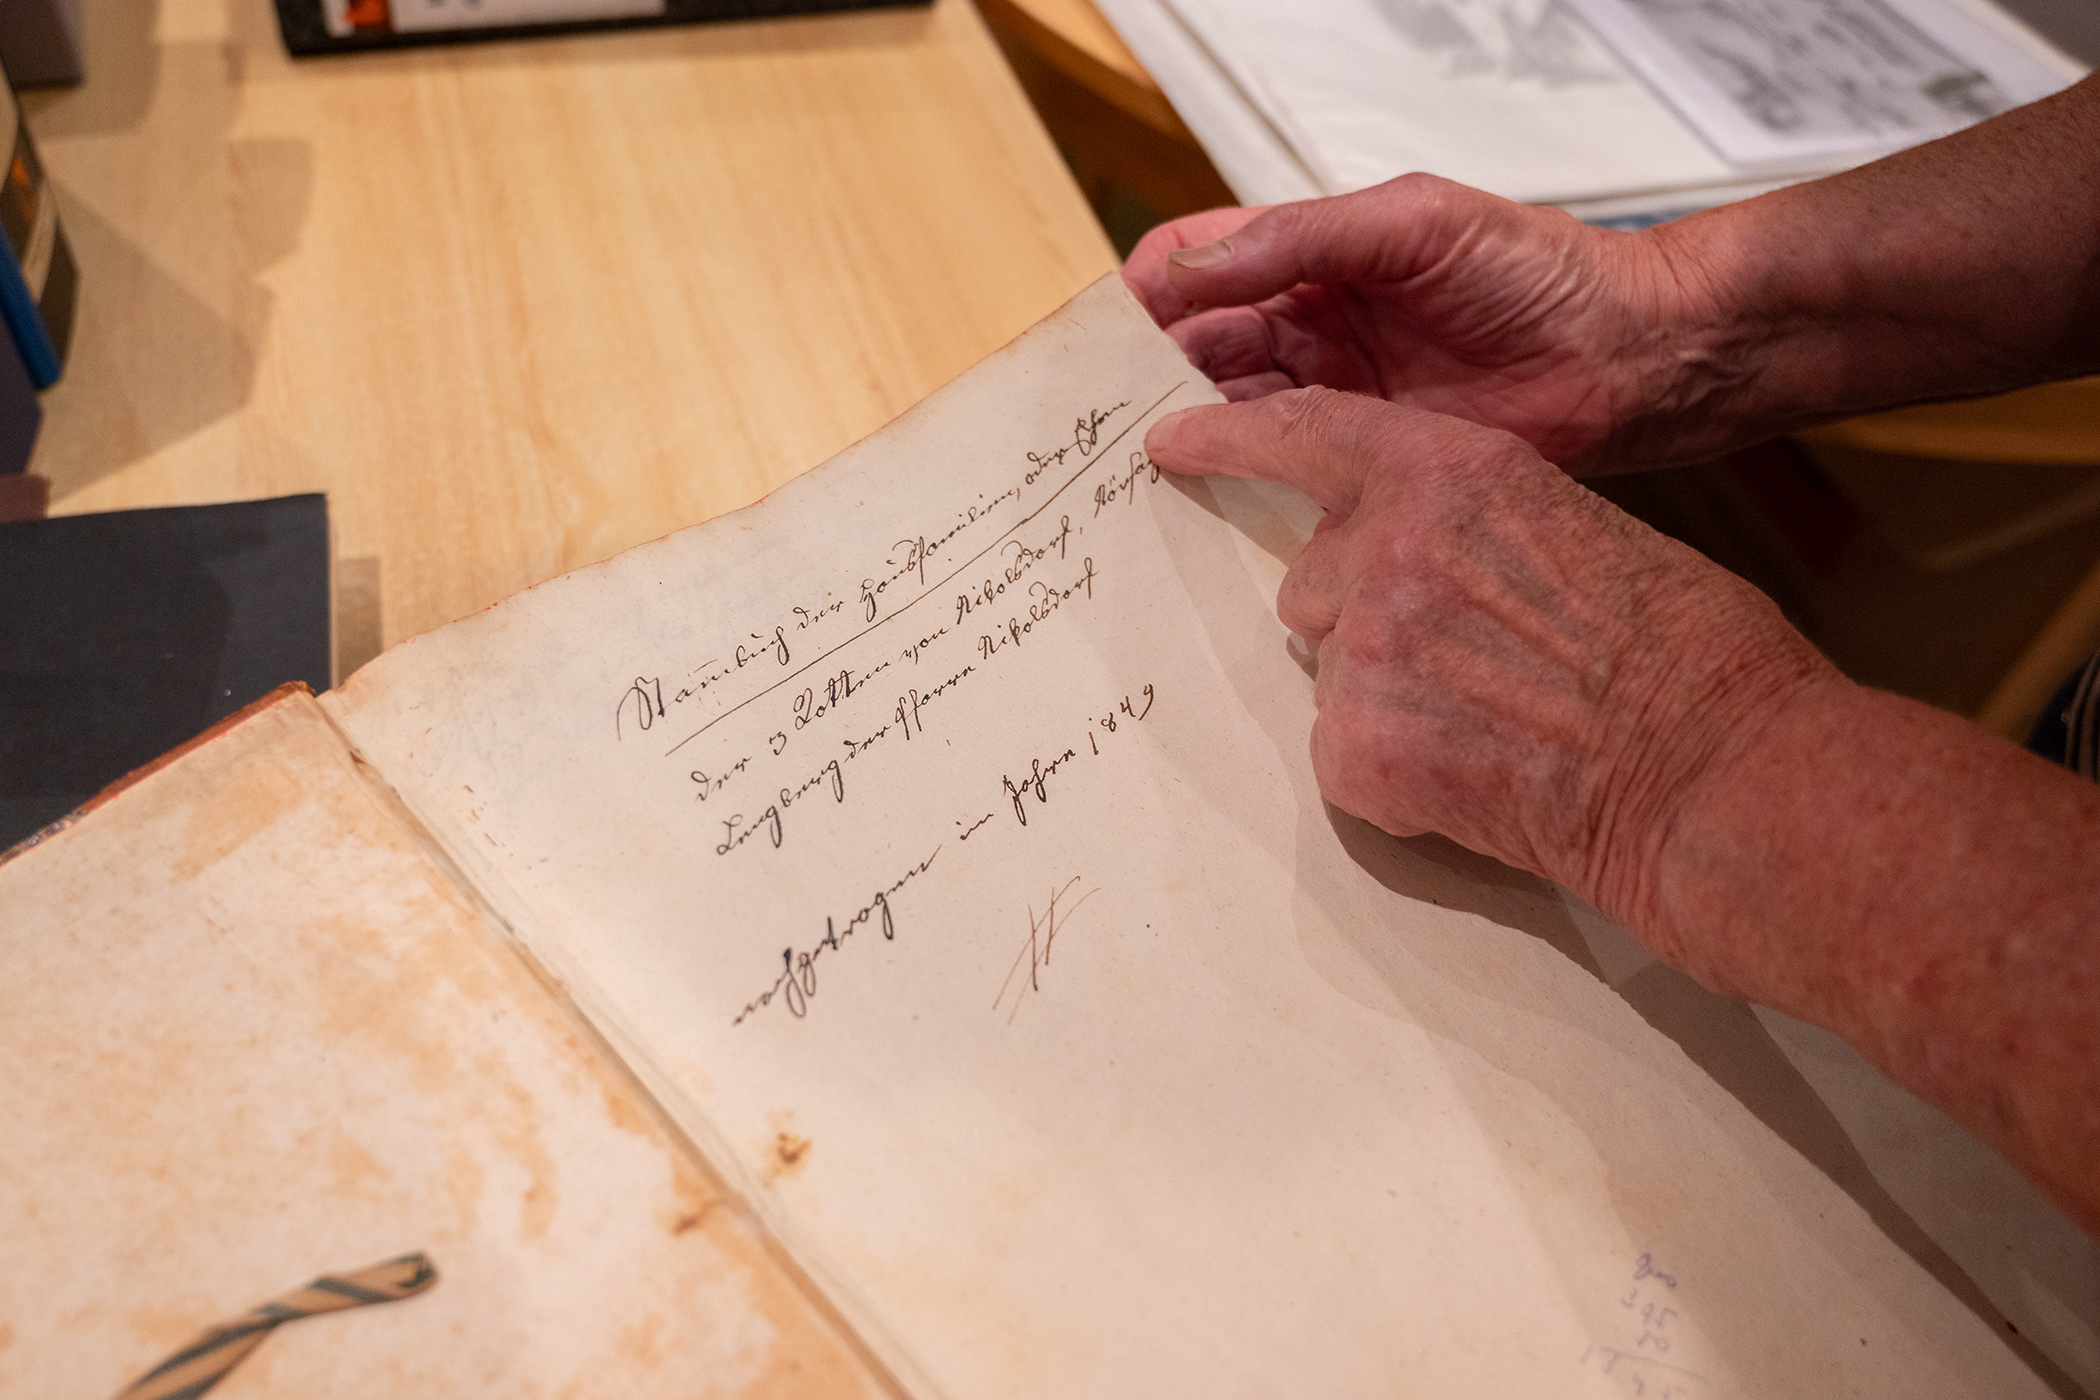 Stam̅buch der Hausfamilien, oder Ehen
der 3 Rotten von Nikolsdorf, Nörsach
Lengberg der Pfarre Nikolsdorf
nachgetragen im Jahre 1849
395